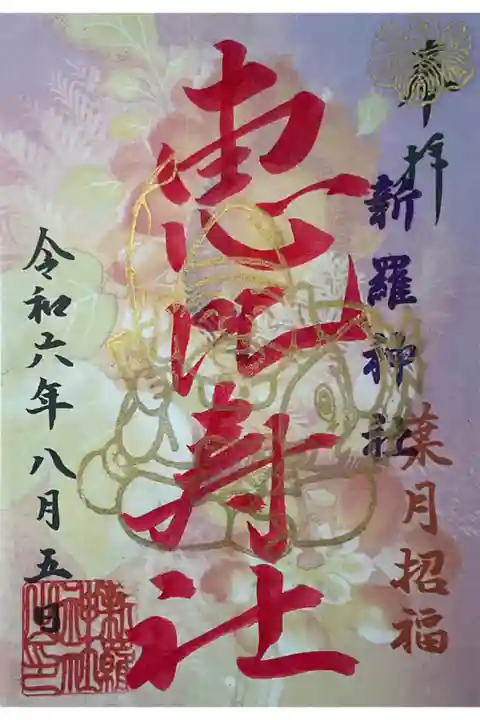 奉拝
新羅神社
葉月招福
恵比寿社
令和六年八月五日
新羅神社之印